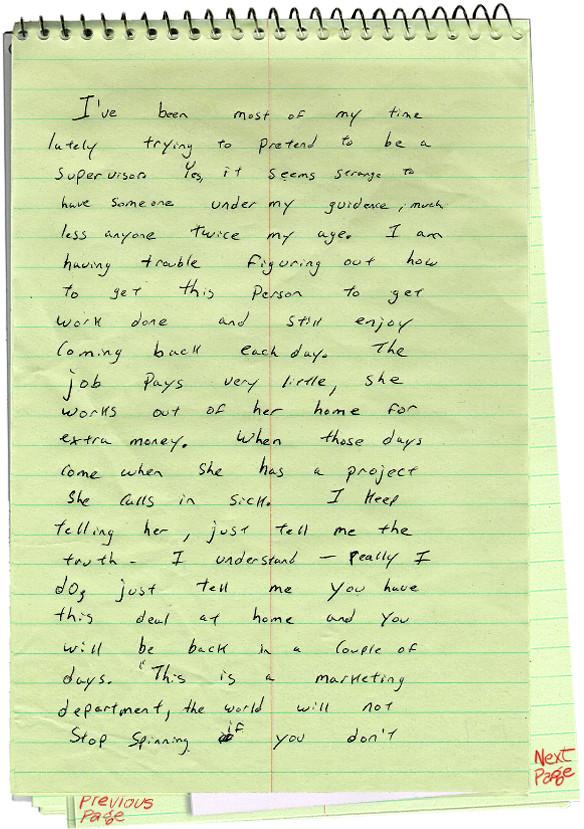 I've been most of my time
lately trying to pretend to be a
supervisor. Yes, it seems strange to
have someone under my guidence, much
less anyone twice my age. I am
having trouble figuring out how
to get this person to get
work done and still enjoy
coming back each day. The
job pays very little, she
works out of her home for
extra money. When those days
come when she has a project
she calls in sick. I keep
telling her, just tell me the
truth - I understand - really I
do, just tell me you have
this deal at home and you
will be back in a couple of
days. "This is a marketing
department, the world will not
stop spinning if you don't
Next
Page
Previous
Page